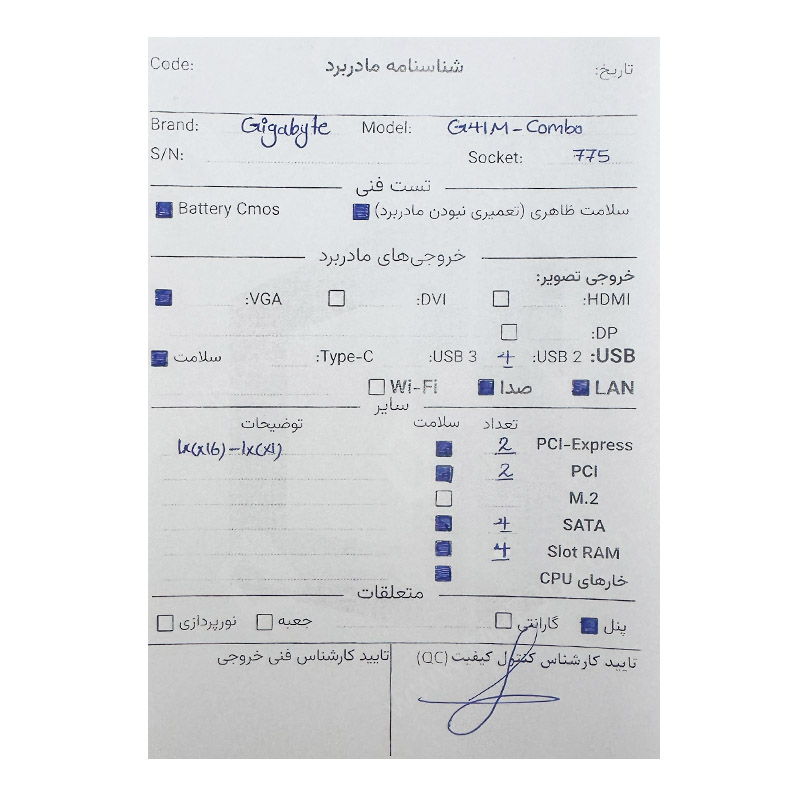 Code: شناسنامه مادربرد تاریخ:
Brand: Gigabyte Model: G41M-Combo
S/N: Socket: 775
تست فنی
سلامت ظاهری (تعمیری نبودن مادربرد) Battery Cmos
خروجی‌های مادربرد
خروجی تصویر:
HDMI: DVI: VGA:
DP:
USB: USB 2: 4 USB 3: Type-C: سلامت
LAN صدا Wi-Fi
سایر
تعداد سلامت توضیحات
PCI-Express 2 1x(x16)-1x(x1)
PCI 2
M.2
SATA 4
Slot RAM 4
خارهای CPU
متعلقات
پنل گارانتی جعبه نورپردازی
تایید کارشناس کنترل کیفیت (QC) تایید کارشناس فنی خروجی